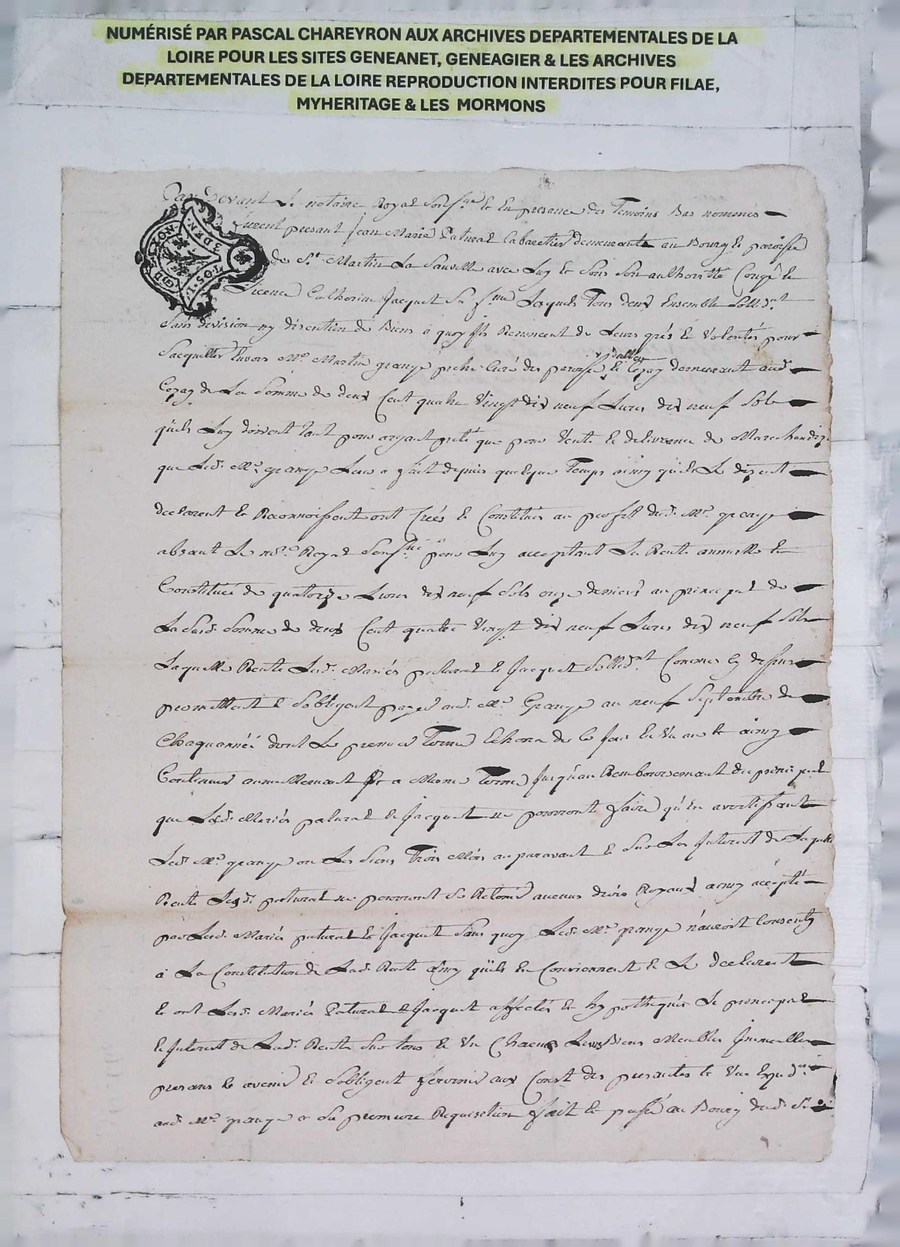 NUMÉRISÉ PAR PASCAL CHAREYRON AUX ARCHIVES DEPARTEMENTALES DE LA
LOIRE POUR LES SITES GENEANET, GENEAGIER & LES ARCHIVES
DEPARTEMENTALES DE LA LOIRE REPRODUCTION INTERDITES POUR FILAE,
MYHERITAGE & LES MORMONS
Par Devant Le notaire Royal Sous.né Et En presance des Temoins Bas nommes
furent presant Jean Marie Patural Cabaretier demeurant au Bourg Et paroisse
de St. Martin La Sauveté avec Luy Et Sous Son authorité Congé Et
Licence Catherine Jacquet Sa fme Lesquels Tous deux Ensemble Sollidrt
Sans division ny discution de Biens à quoy ils Renoncent de Leurs grés Et Volontés pour
Sacquitter Envers Mre Martin grange pretre Curé des paroisses Et Cezay demeurant aud.
Cezay de La Somme de deux Cent quatre Vingt dix neuf Livres dix neuf Sols
quils Luy doivent tant pour argant preté que pour Vente Et delivrence de Marchandize
que Led. Mre grange Leur a fait depuis quelque Temps ainsy quils Le disent
declarent Et Reconnoissent ont Créés Et Constitués au profit dud. Mre grange
absant Le nore Royal Sous.né pour Luy acceptant La Rente annuelle Et
Constituée de quatorze Livres dix neuf Sols onze deniers au principal de
La Susd. Somme de deux Cent quatre Vingt dix neuf Livres dix neuf Sols
Laquelle Rente Lesd. Mariés patural Et Jacquet Sollidrt Comme Cy dessus
promettent Et Sobligent payer aud. Mre Grange au neuf Septembre de
Chaquannée dont Le premier Terme Echora de Ce Jour En Un an Et ainsy
Continuer annuellemant Et a Meme Terme Jusquau Remboursemant du principal
que Lesd. Mariés patural Et Jacquet ne pourront faire qu'en avertissant
Led. Mre grange ou Les Siens Trois Mois auparavant Et Sur Les Interest de Laquelle
Rente Lesd. patural ne pourront Se Retenir aucuns drois Royaux ainsy accepté
par Lesd. Mariés patural Et Jacquet Sans quoy Led. Mre grange n'auroit Consenty
à La Constitution de Lad. Rente ainsy quils En Conviennent Et Le declarent
Et ont Lesd. Mariés Patural Et Jacquet affectés Et hypothequés Le principal
Et Interest de Lad. Rente Sur tous Et Un Chacun Leurs Biens Meubles Immeubles
presans Et avenir Et Sobligent fournir aux Coust des presantes Et Une Expedon
aud. Mre grange a Sa premiere Requisition fait Et passé au Bourg dud. St.